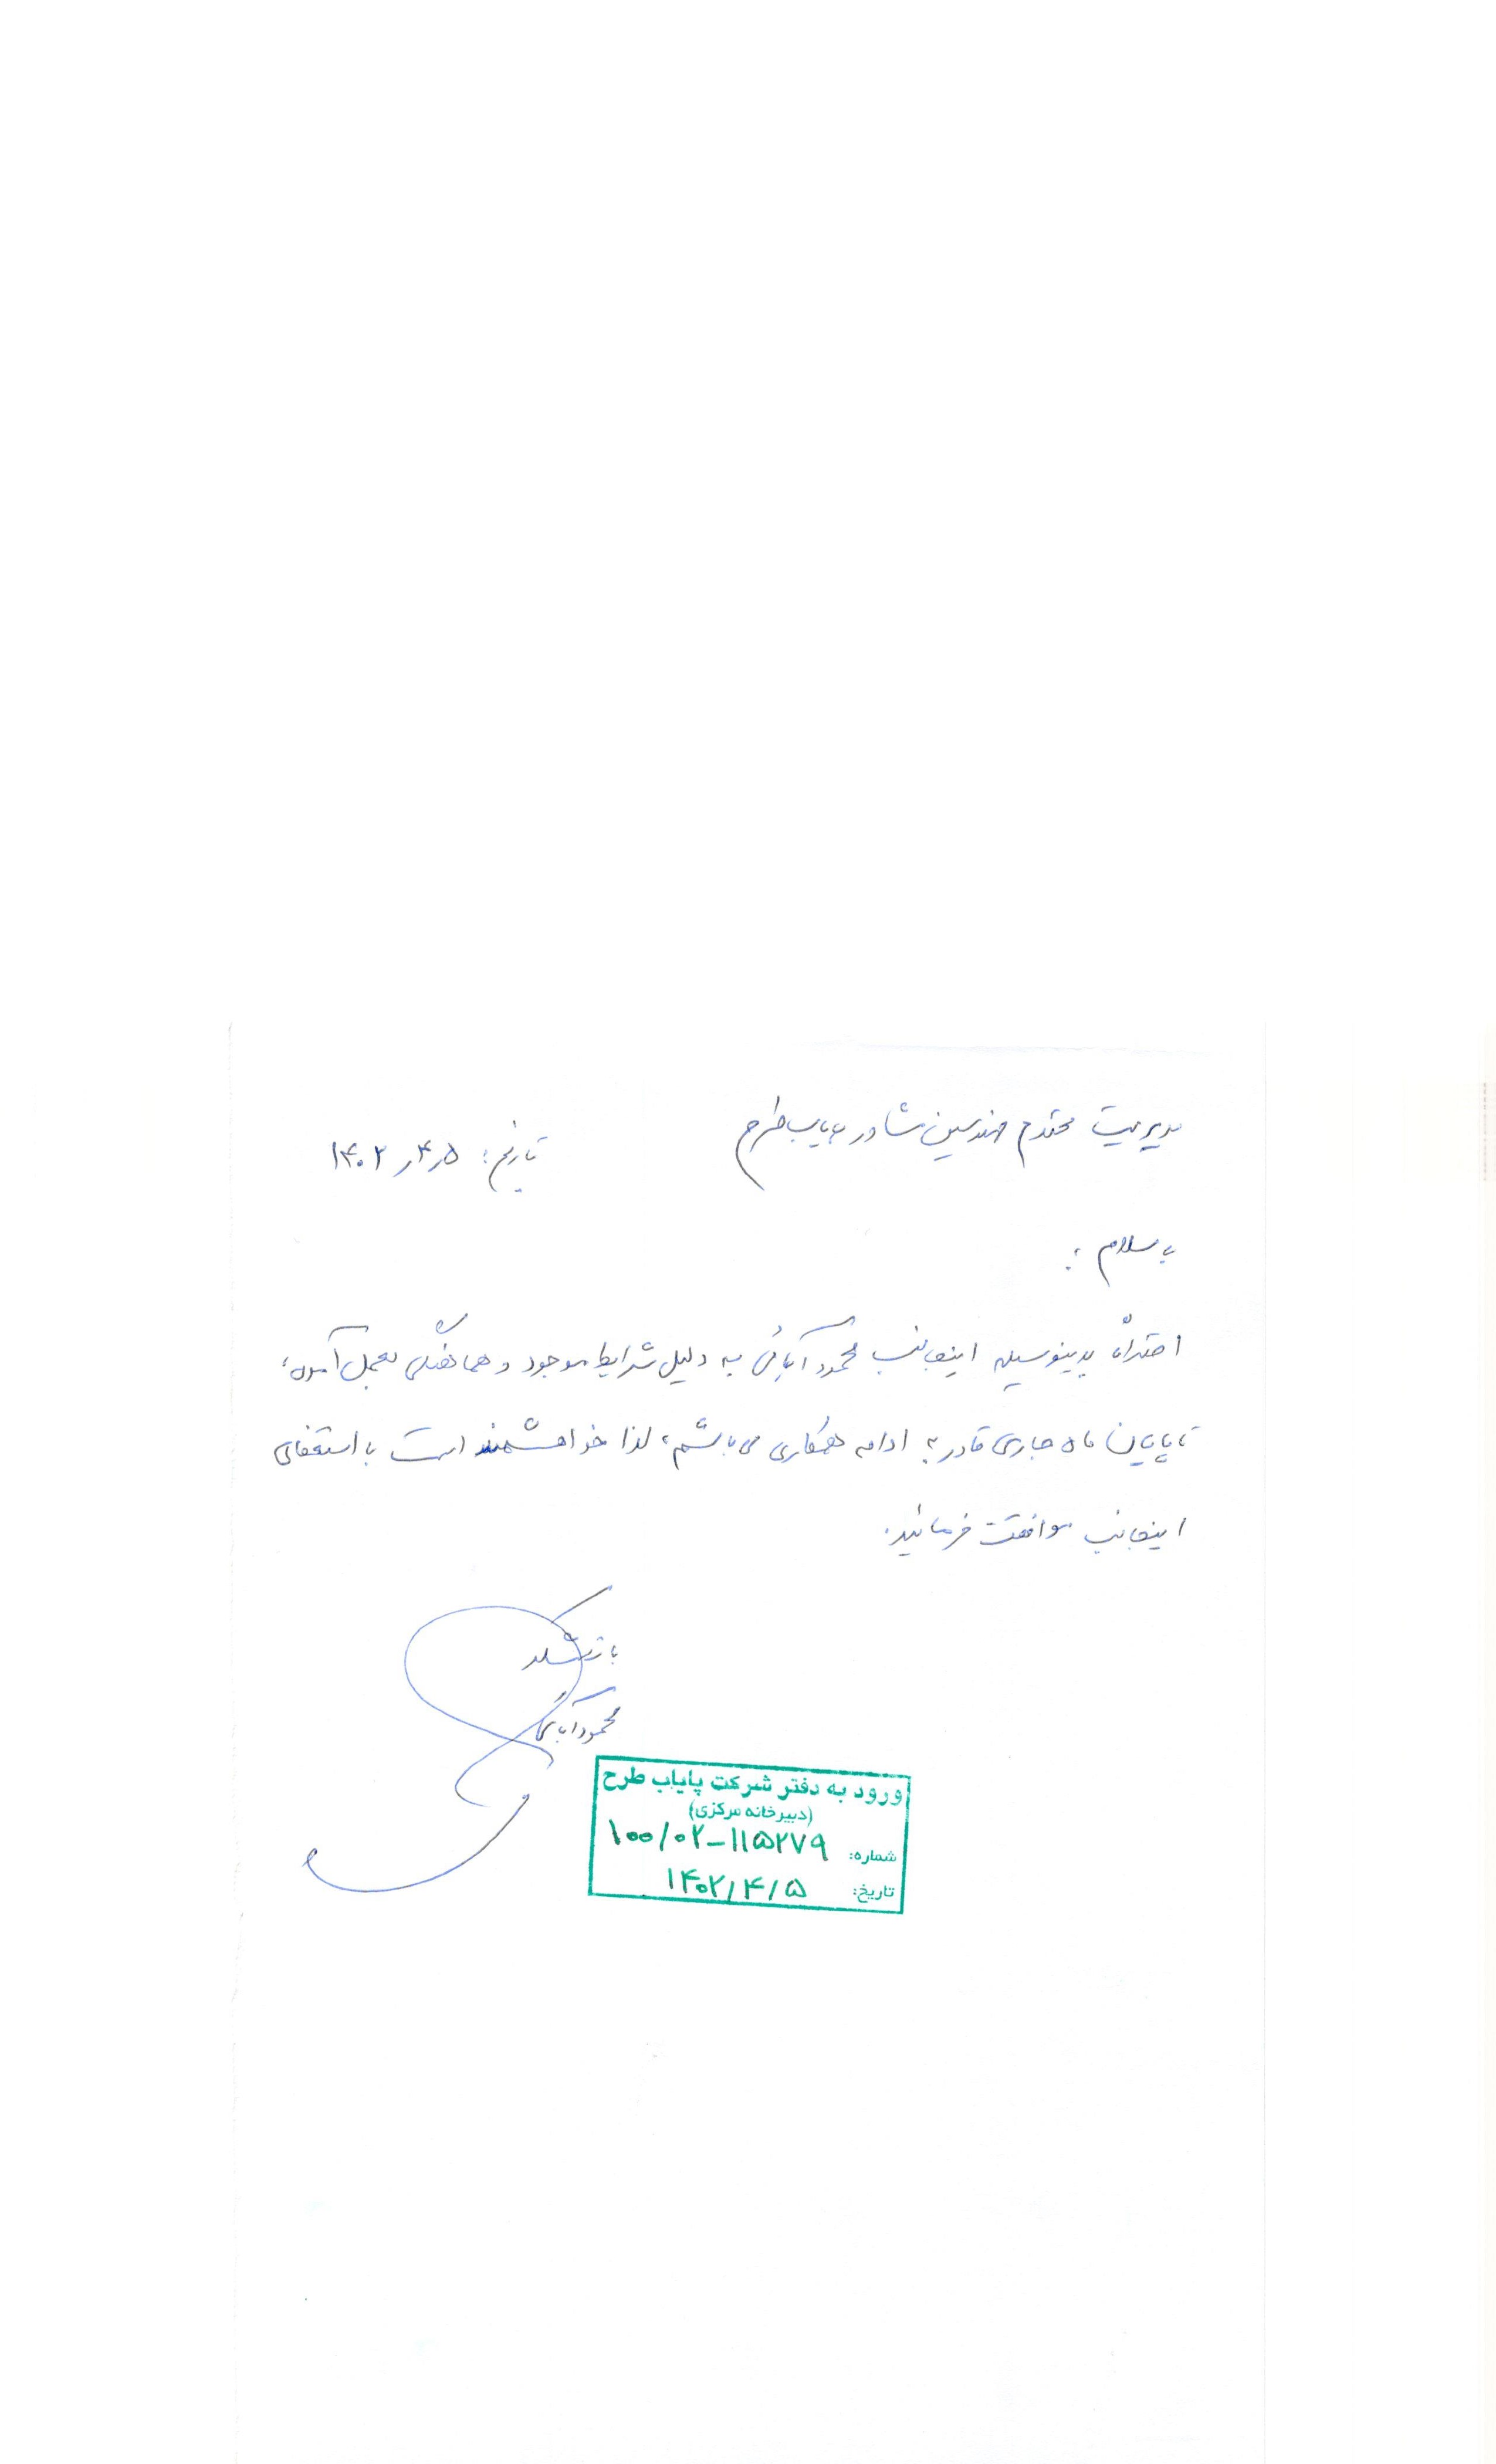 مدیریت محترم مهندسین مشاور پایاب طرح
تاریخ: ۱۴۰۲/۴/۵
با سلام؛
احتراماً بدینوسیله اینجانب محمود آبائی به دلیل شرایط موجود و هماهنگی بعمل آمده،
تا پایان ماه جاری قادر به ادامه همکاری می باشم، لذا خواهشمند است با استعفای
اینجانب موافقت فرمائید.
با تشکر
محمود آبائی
ورود به دفتر شرکت پایاب طرح
(دبیرخانه مرکزی)
شماره: ۱۰۰/۰۲-۱۱۵۲۷۹
تاریخ: ۱۴۰۲/۴/۵